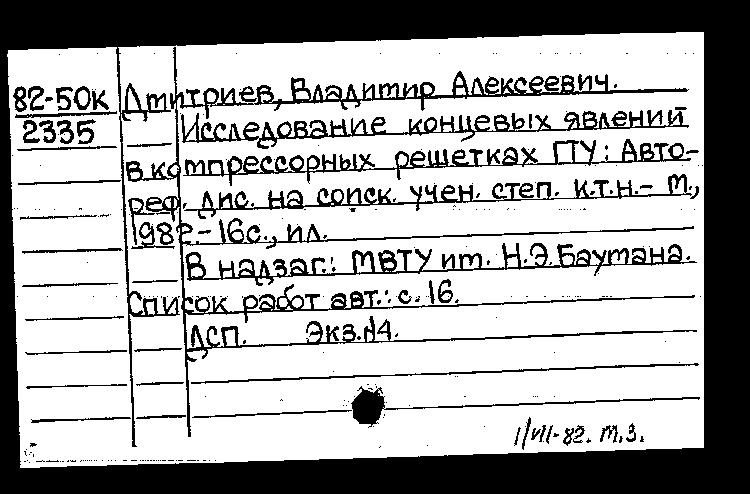 82-50к Дмитриев, Владимир Алексеевич.
2335 Исследование концевых явлений
в компрессорных решетках ГТУ: Авто-
реф. дис. на соиск. учен. степ. к.т.н.- М.,
1982.-16с., ил.
В надзаг.: МВТУ им. Н.Э.Баумана.
Список работ авт.: с.16.
ДСП. Экз.№4.
1/VII-82. М.З.